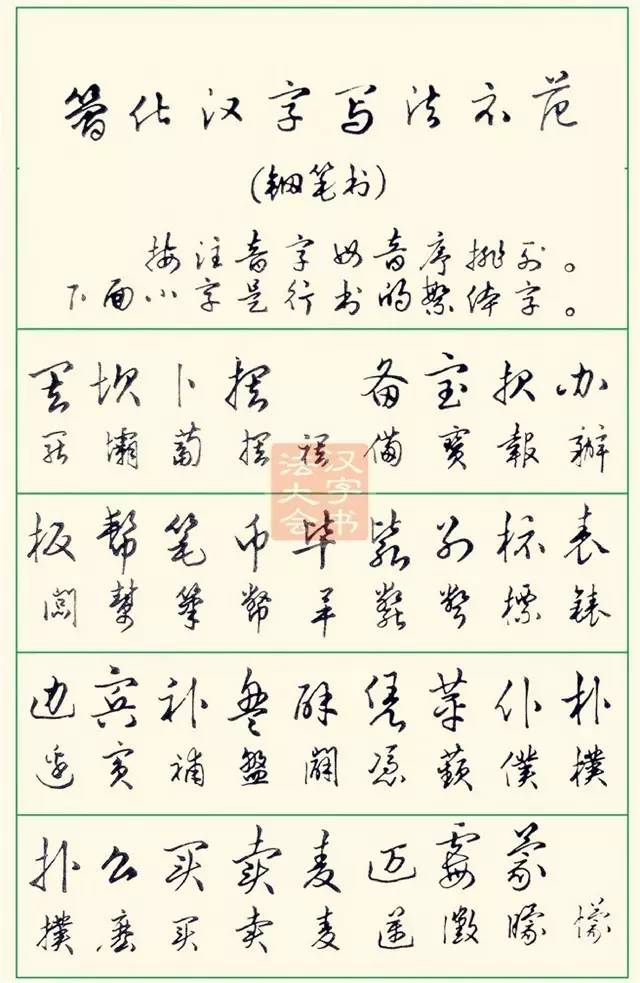 简化汉字写法示范
(钢笔书)
按注音字母音序排列。
下面小字是行书的繁体字。
罢 坝 卜 摆 备 宝 报 办
罷 壩 蔔 擺 襬 備 寶 報 辦
汉字书法大会
板 帮 笔 币 毕 毙 别 标 表
闆 幫 筆 幣 畢 斃 彆 標 錶
边 宾 补 盘 辟 凭 苹 仆 朴
邊 賓 補 盤 闢 憑 蘋 僕 樸
扑 么 买 卖 麦 迈 霉 蒙
撲 麽 買 賣 麥 邁 黴 矇 懞